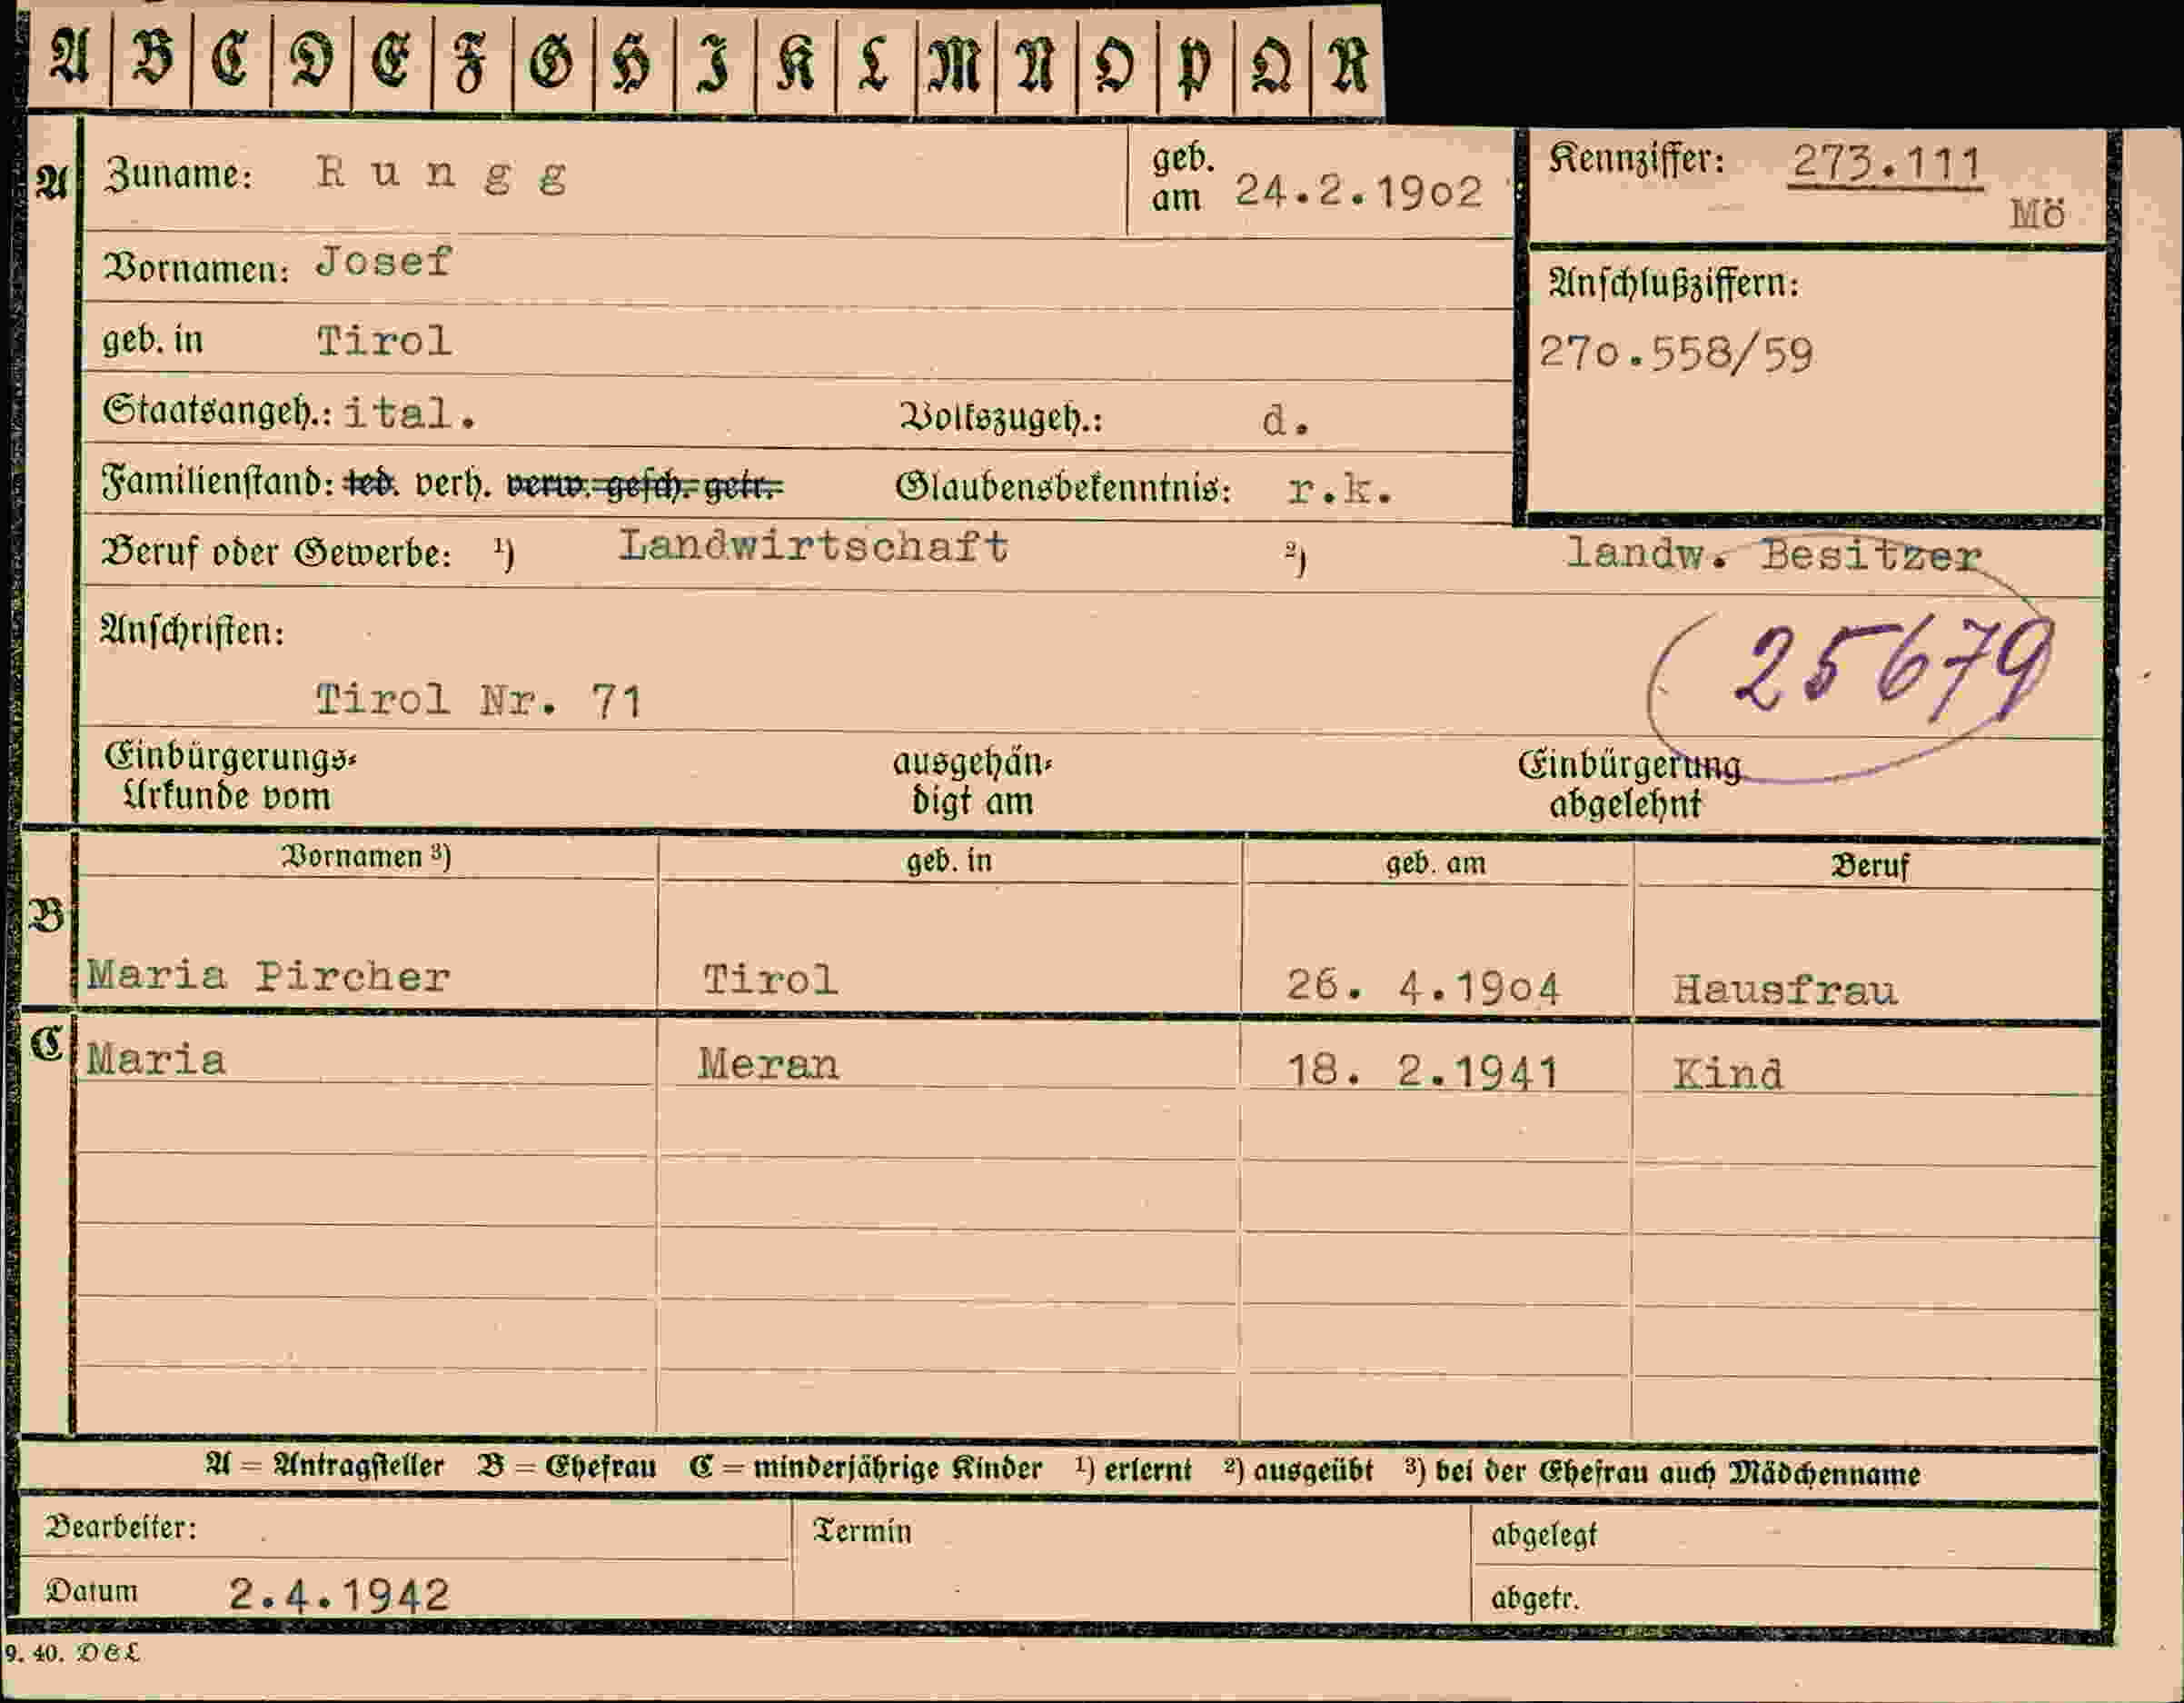 A B C D E F G H I K L M N O P Q R
A Zuname: Rungg geb. am 24.2.1902 Kennziffer: 273.111
Mö
Vornamen: Josef Anschlußziffern:
geb. in Tirol 270.558/59
Staatsangeh.: ital. Volkszugeh.: d.
Familienstand: led. verh. verw. gesch. getr. Glaubensbekenntnis: r.k.
Beruf oder Gewerbe: ¹) Landwirtschaft ²) landw. Besitzer
Anschriften: 25679
Tirol Nr. 71
Einbürgerungs- ausgehän- Einbürgerung
Urkunde vom digt am abgelehnt
Vornamen ³) geb. in geb. am Beruf
B
Maria Pircher Tirol 26. 4.1904 Hausfrau
C Maria Meran 18. 2.1941 Kind
A = Antragsteller B = Ehefrau C = minderjährige Kinder ¹) erlernt ²) ausgeübt ³) bei der Ehefrau auch Mädchenname
Bearbeiter: Termin abgelegt
Datum 2.4.1942 abgetr.
9. 40. DEL